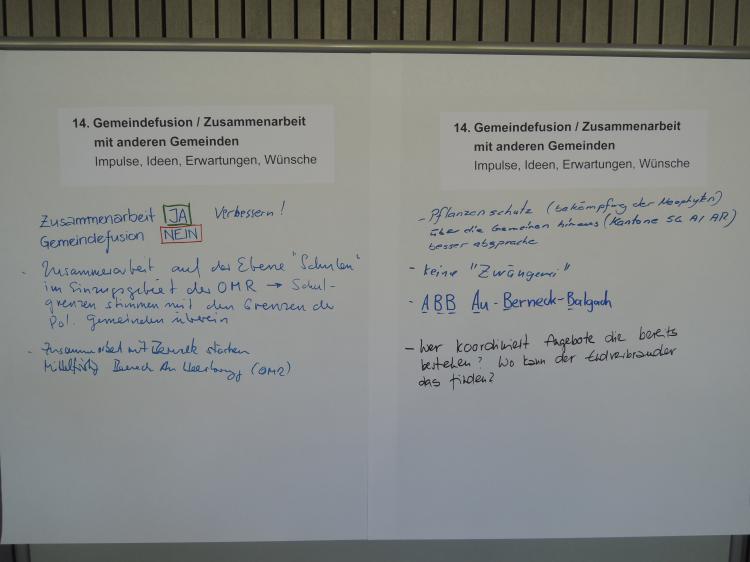 14. Gemeindefusion / Zusammenarbeit
mit anderen Gemeinden
Impulse, Ideen, Erwartungen, Wünsche
Zusammenarbeit JA Verbessern!
Gemeindefusion NEIN
- Zusammenarbeit auf der Ebene "Schulen"
im Einzugsgebiet der OMR → Schul-
grenzen stimmen mit den Grenzen der
Pol. Gemeinden überein
- Zusammenarbeit mit Berneck stärken
Mittelfristig Berneck Au Heerbrugg (OMR)
14. Gemeindefusion / Zusammenarbeit
mit anderen Gemeinden
Impulse, Ideen, Erwartungen, Wünsche
- Pflanzenschutz (bekämpfung der Neophyten)
über die Gemeinen hinaus (Kantone SG AI AR)
besser absprache
- keine "Zwängerei"
- ABB Au-Berneck-Balgach
- Wer koordiniert Angebote die bereits
bestehen? Wo kann der Endverbraucher
das finden?